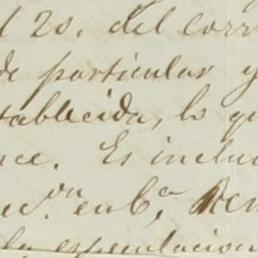 l 20, del corr
de particular y
tablecida, lo qu
nce. Es inclu
en Bca, Ren
la especulacion